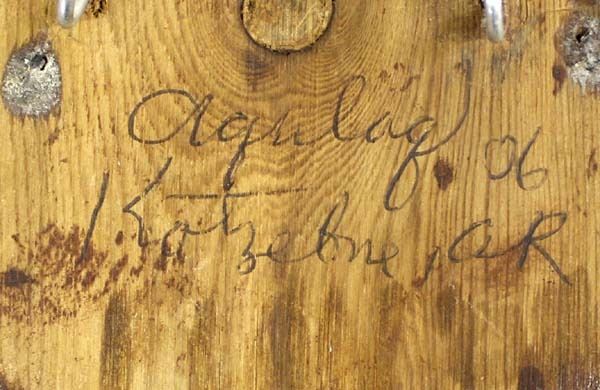 Aqulaq 06
Kotzebue, AK